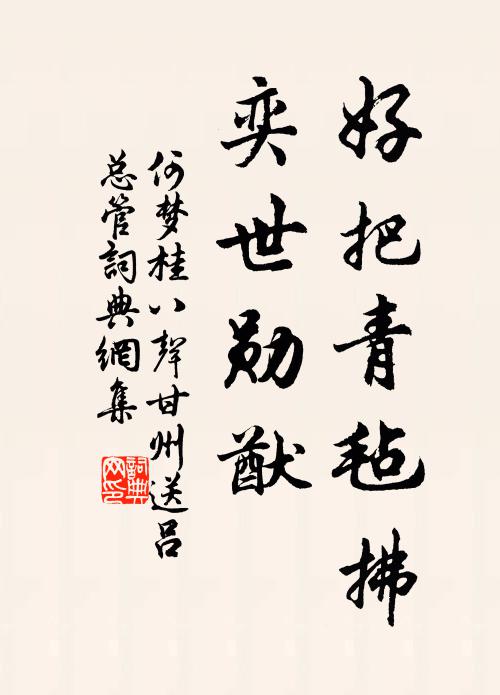 好把青毡拂
奕世勋猷
何梦桂八聲甘州送呂
总管詞典網集
詞典网